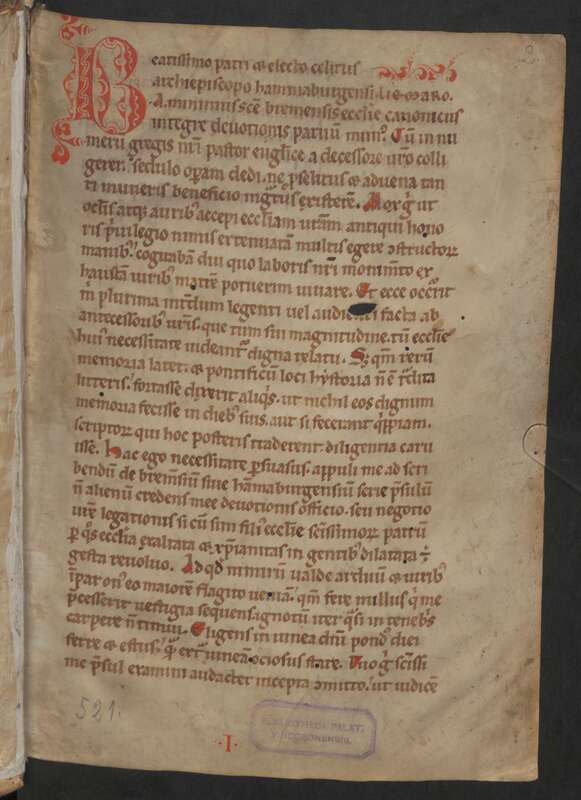 Beatissimo patri & electo celitus
archiepiscopo hammaburgensi LIEMARO.
A. minimus scē bremensis ecclie canonicus
integre deuotionis paruū mun⁹. Cū in nu
meru gregis nr̄i pastor euglice a decessore uro colli
gerer. sedulo opam dedi. ne pselitus & aduena tan
ti muneris beneficio ingtus existerē. Mox g ut
oclis atq; aurib⁹ accepi eccliam urām antiqui hono
ris puilegio nimis extenuatā multis egere ꝯstructorꝝ
manib⁹. cogitabā diu quo laboris nr̄i monimto ex
haustā uirib⁹ matrē potuerim iuuare. Et ecce occrit
m plurima intdum legenti uel audienti facta ab
antecessorib⁹ ur̄is. que tum sui magnitudine. tū ecclie
hui⁹ necessitate uideantr digna relatu. Sz qm rerū
memoria latet. & pontificū loci hystoria n̄ ē tdita
litteris. fortasse dixerit aliqs. ut nichil eos dignum
memoria fecisse in dieb⁹ suis. aut si fecerant qppiam.
scriptorꝝ qui hoc posteris traderent diligentia caru
isse. Hac ego necessitate psuasus. appuli me ad scri
bendū de bremsiū siue hāmaburgensiū serie psulū
n̄ alienū credens mee deuotionis officio. seu negotio
ur̄e legationis si cū sim fili⁹ ecclie scissimorꝝ patrū
p qs ecclia exaltata & xpianitas in gentib⁹ dilatata ÷
gesta reuoluo. Ad qd nimirū ualde arduū & uirib⁹
ipar on⁹ eo maiorē flagito ueniā. qm fere nullus q me
pcesserit uestigia sequens. ignotū iter qsi in tenebs
carpere n̄ timui. Eligens in uinea dn̄i pond⁹ diei
ferre & estus. q ext uineā ociosus stare. Tuo g scissi
me psul examini audacter incepta ꝯmitto. ut iudicē
521.
·I·
BIBLIOTHECA PALAT.
VINDOBONENSIS.